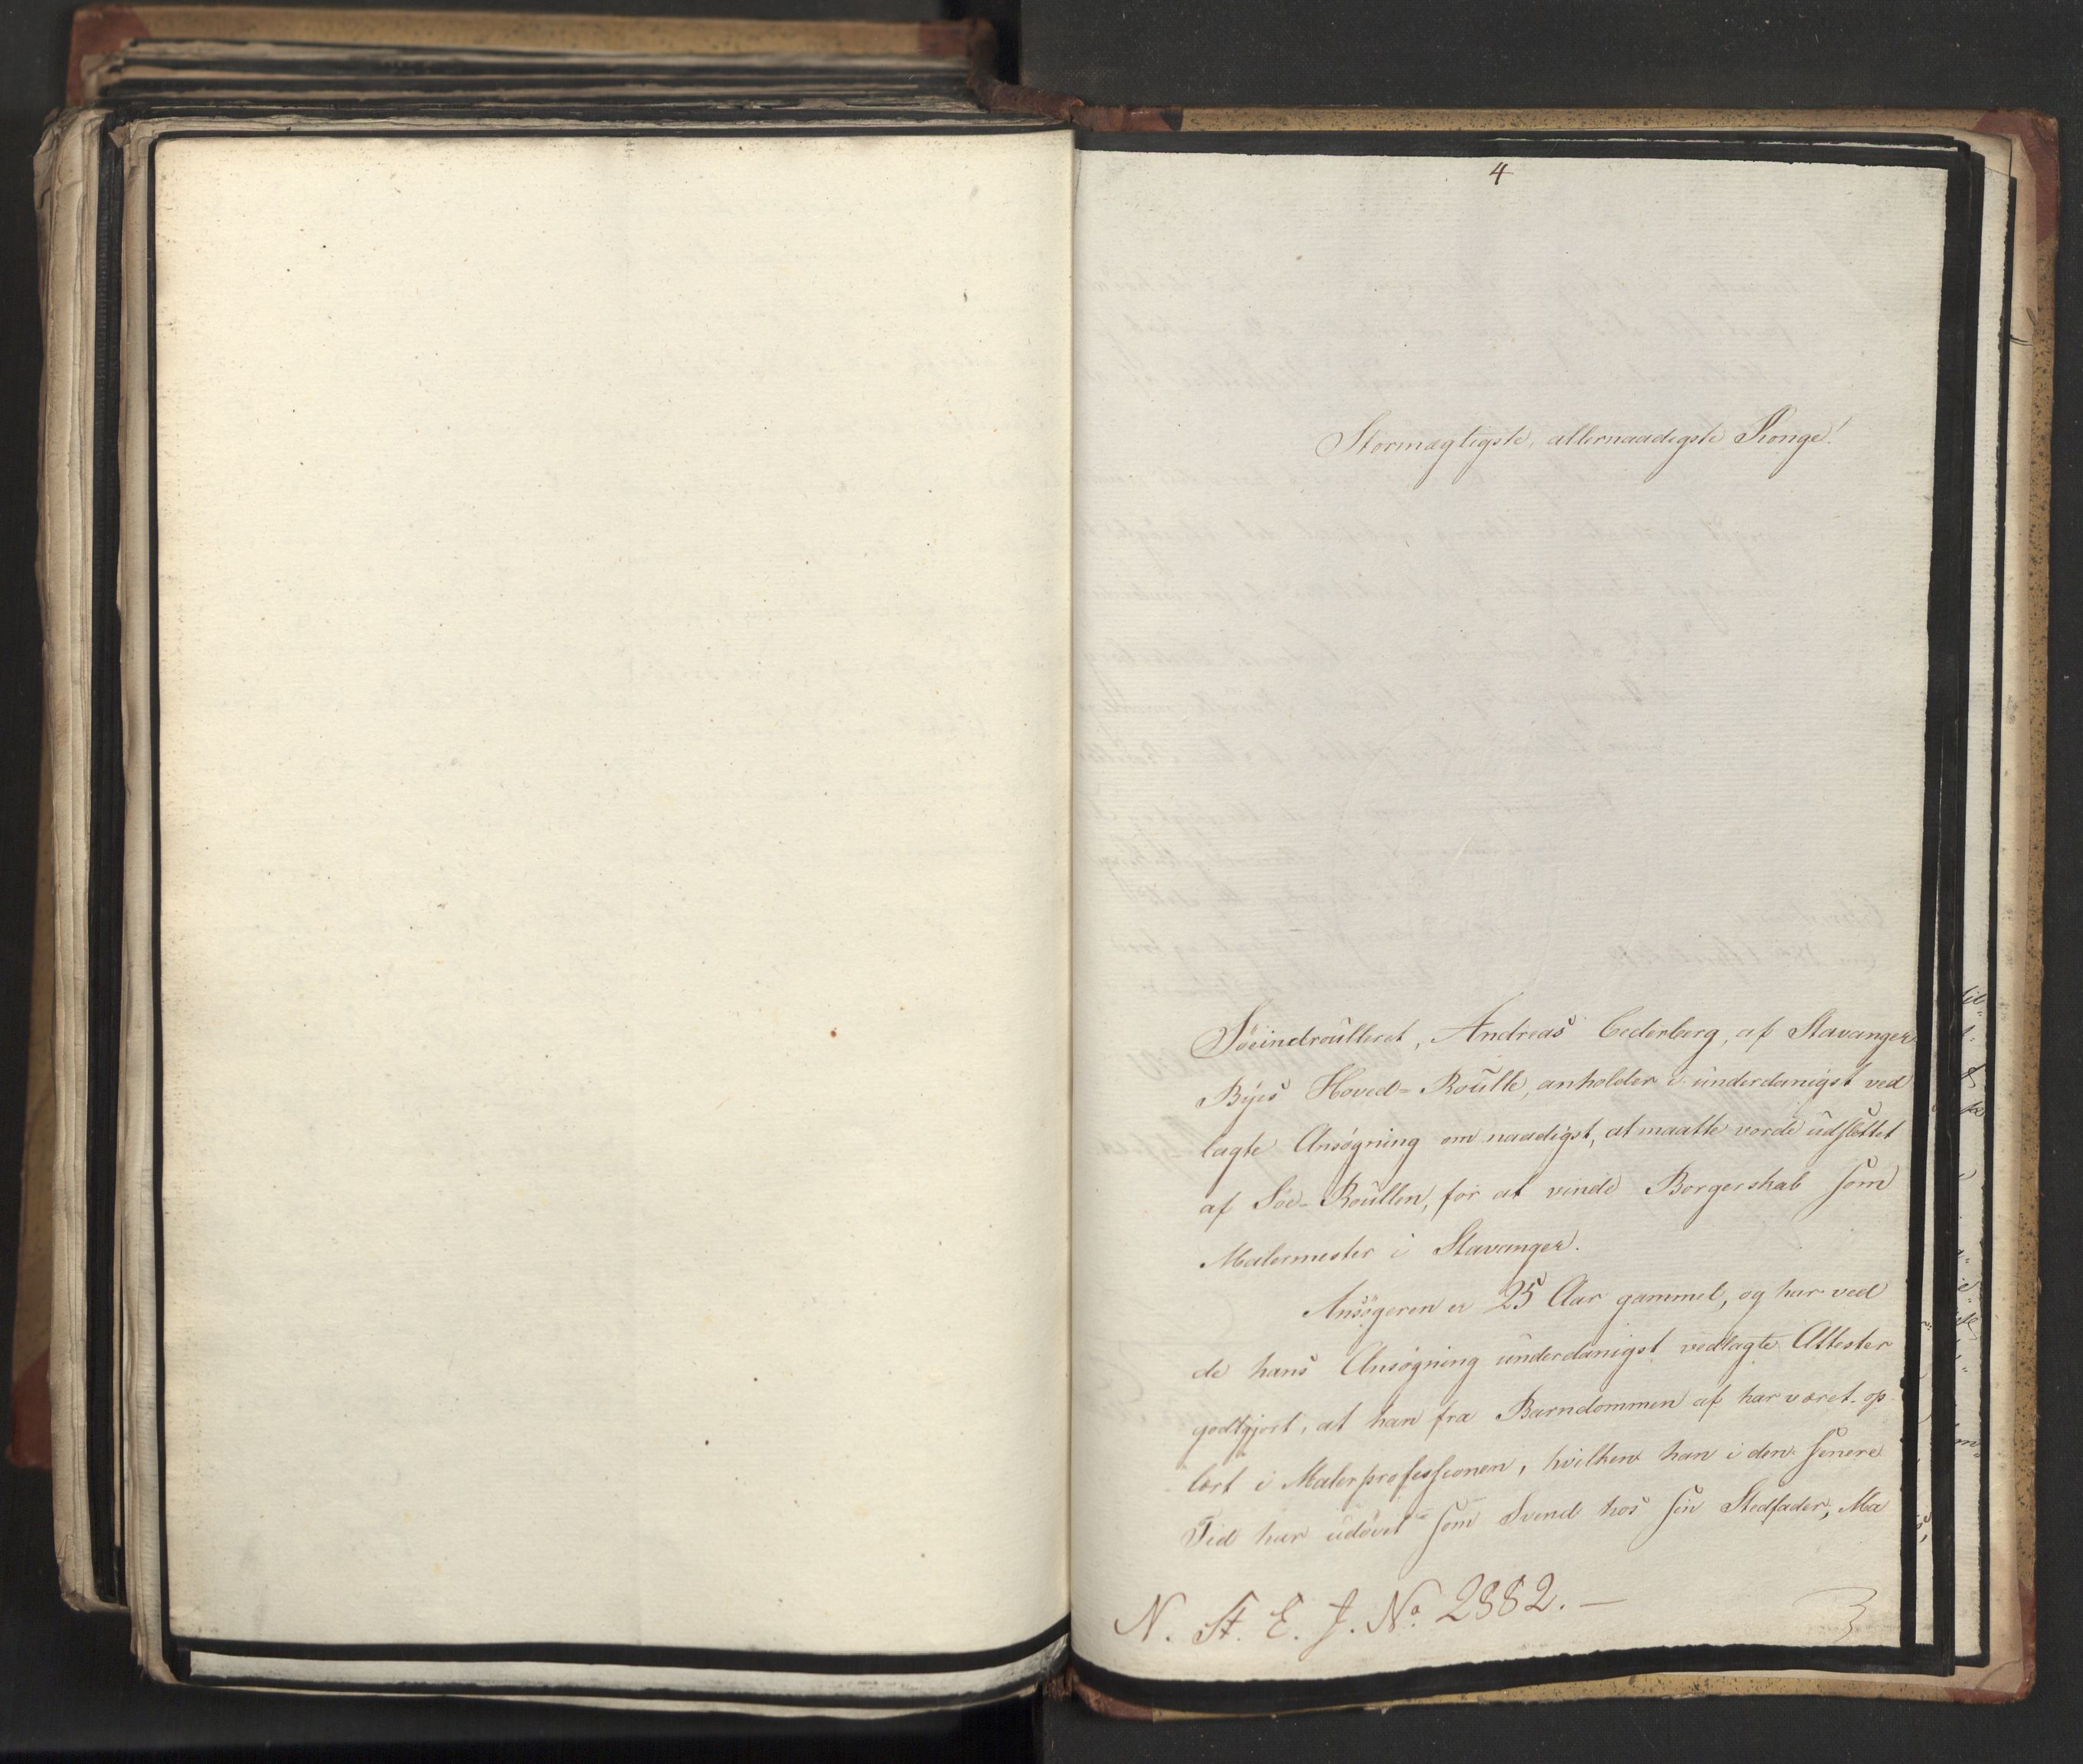 4
Stormægtigste, allernaadigste Konge!
Søeindroulleret, Andreas Cederberg, af Stavanger
Byes Hoved-Roulle, anholder i underdanigst ved
lagte Ansøgning om naadigst, at maatte vorde udslettet
af Søe-Roullen, for at vinde Borgerskab som
Malermester i Stavanger.
Ansøgeren er 25 Aar gammel, og har ved
de hans Ansøgning underdanigst vedlagte Attester
godtgjort, at han fra Barndommen af har været op
lært i Malerprofessionen, hvilken han i den senere
Tid har udøvet som Svend hos sin Stedfader, Ma
N. St. E. J. No. 2882.—